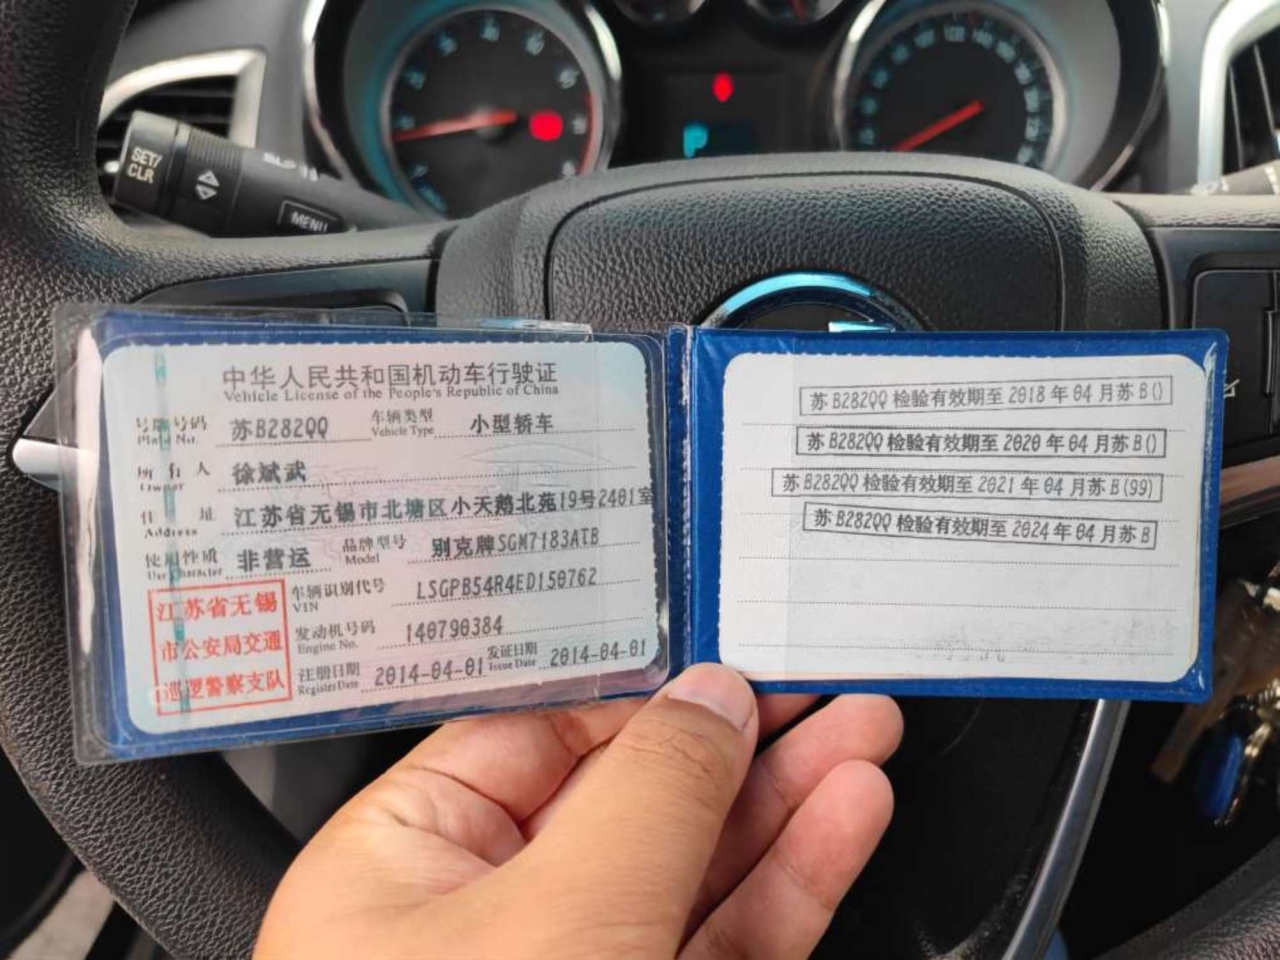 SET/
CLR
MENU
P
中华人民共和国机动车行驶证
Vehicle License of the People's Republic of China
号牌号码 苏B282QQ 车辆类型 小型轿车
Plate No. Vehicle Type
所有人 徐斌武
Owner
住址 江苏省无锡市北塘区小天鹅北苑19号2401室
Address
使用性质 非营运 品牌型号 别克牌SGM7183ATB
Use Character Model
江苏省无锡
市公安局交通
巡逻警察支队
车辆识别代号 LSGPB54R4ED150762
VIN
发动机号码 140790384
Engine No.
注册日期 2014-04-01 发证日期 2014-04-01
Register Date Issue Date
苏B282QQ检验有效期至2018年04月苏B()
苏B282QQ检验有效期至2020年04月苏B()
苏B282QQ检验有效期至2021年04月苏B(99)
苏B282QQ检验有效期至2024年04月苏B